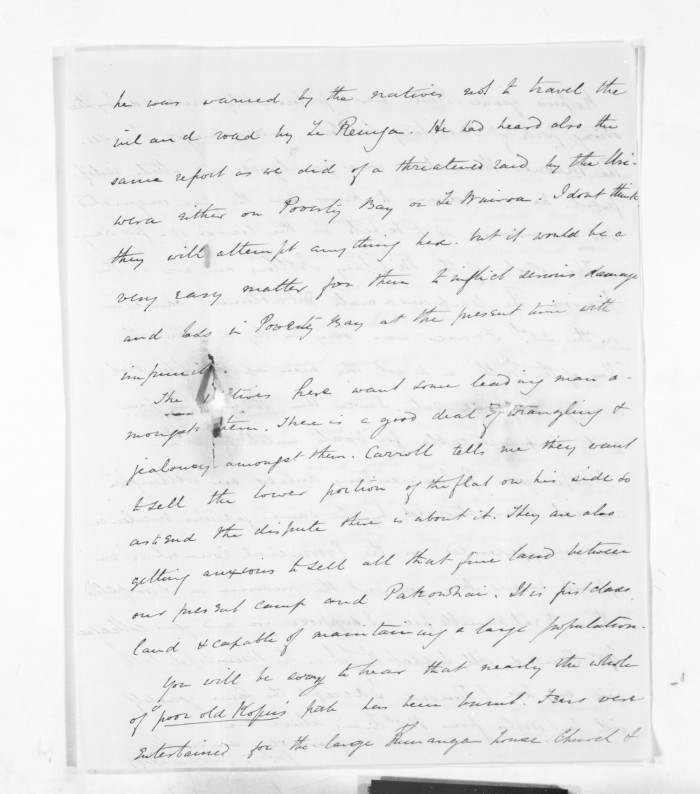 he was warned by the natives not to travel the
inland road by Te Reinga. He had heard also the
same report as we did of a threatened raid by the Uri-
wera either on Poverty Bay or Te Wairoa. I dont think
they will attempt anything here. but it would be a
very easy matter for them to inflict serious damage
and loss in Poverty Bay at the present time with
impunity.
The natives here want some leading man a-
mongst them. There is a good deal of wrangling &
jealousy amongst them. Carroll tells me they want
to sell the lower portion of the flat on his side so
as to end the dispute there is about it. They are also
getting anxious to sell all that fine land between
our present camp and Pakowhai. It is first class
land & capable of maintaining a large population.
You will be sorry to hear that nearly the whole
of poor old Kopu's pah has been burnt. Fears were
entertained for the large Runanga house Church &